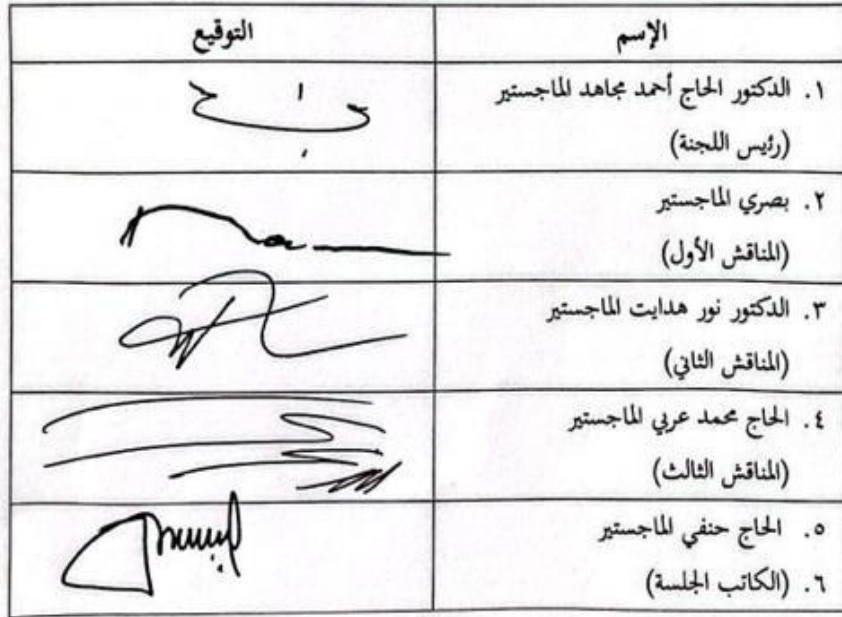 الإسم
التوقيع
١. الدكتور الحاج أحمد مجاهد الماجستير
(رئيس اللجنة)
٢. بصري الماجستير
(المناقش الأول)
٣. الدكتور نور هدايت الماجستير
(المناقش الثاني)
٤. الحاج محمد عربي الماجستير
(المناقش الثالث)
٥. الحاج حنفي الماجستير
٦. (الكاتب الجلسة)